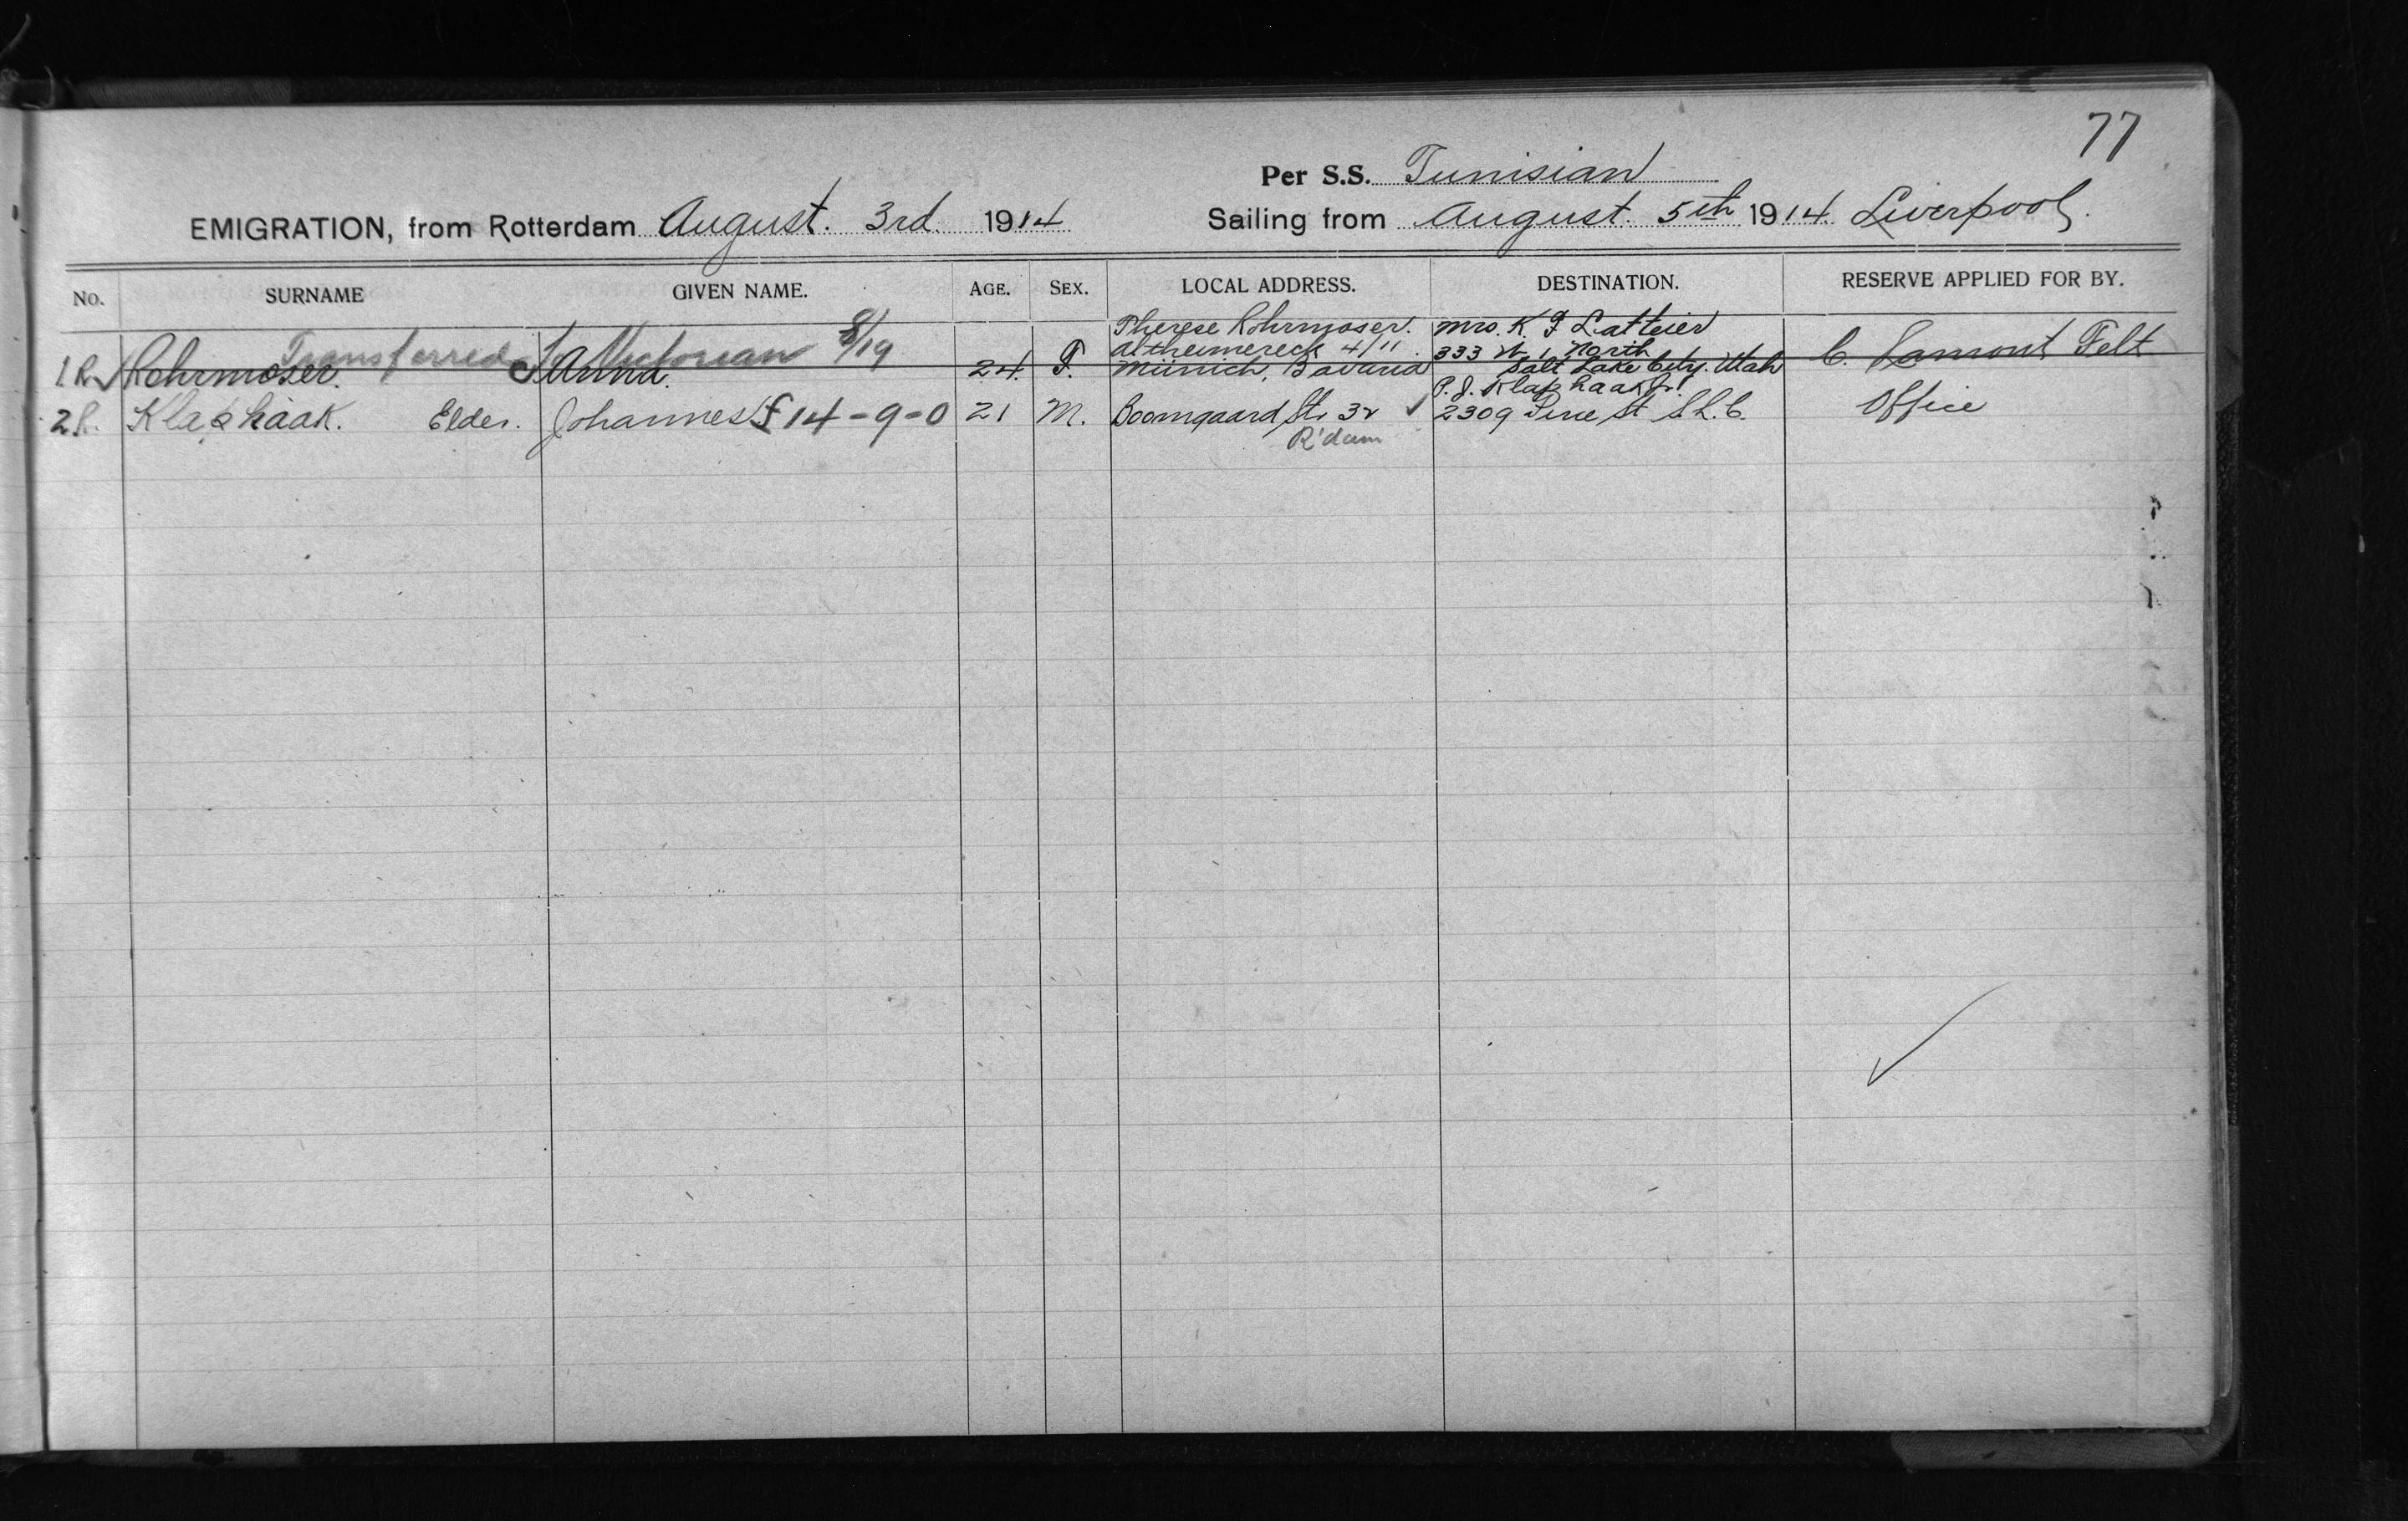 77
Per S.S. Tunisian
EMIGRATION, from Rotterdam August. 3rd. 1914 Sailing from August 5th 1914. Liverpool.
No. SURNAME GIVEN NAME. AGE. SEX. LOCAL ADDRESS. DESTINATION. RESERVE APPLIED FOR BY.
Transferred to Victorian 8/19
Therese Rohrmoser. Mrs. K F Latteier
Altheimereck 4/11. 333 W 1 North
1.R. Rohrmoser. Anna. 24. F. München, Bavaria Salt Lake City. Utah C. Lamont Felt
P. J. Klaphaak Jr.
2R. Klaphaak. Elder. Johannes £14-9-0 21 M. Boomgaard Str 32 ✓ 2309 Pine St S.L.C. Office
R'dam